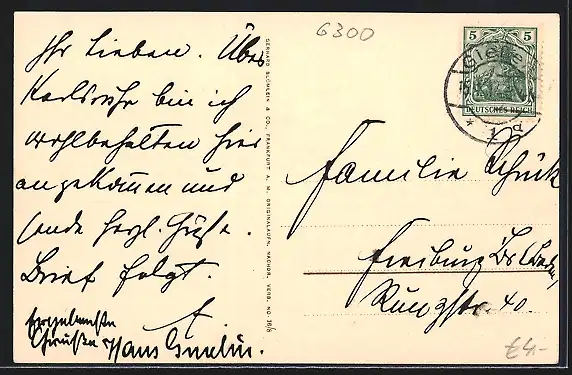 Ihr Lieben. Über
Karlsruhe bin ich
wohlbehalten hier
angekommen und
sende herzl. Grüße.
Brief folgt.
Ergebenste
Grüße Hans Gmelin.
GERHARD BLÜMLEIN & CO., FRANKFURT A. M. ORIGINALAUFN. NACHDR. VERB. NO.
6300
5 5
DEUTSCHES REICH
Gies
Familie Schück
Freiburg Bs (Baden)
Runzstr. 40.
£4,-